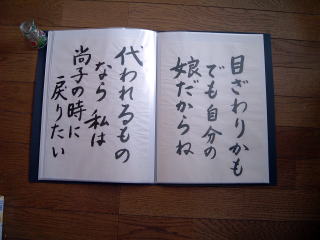 目ざわりかも
でも自分の
娘だからね
代われるもの
なら 私は
尚子の時に
戻りたい